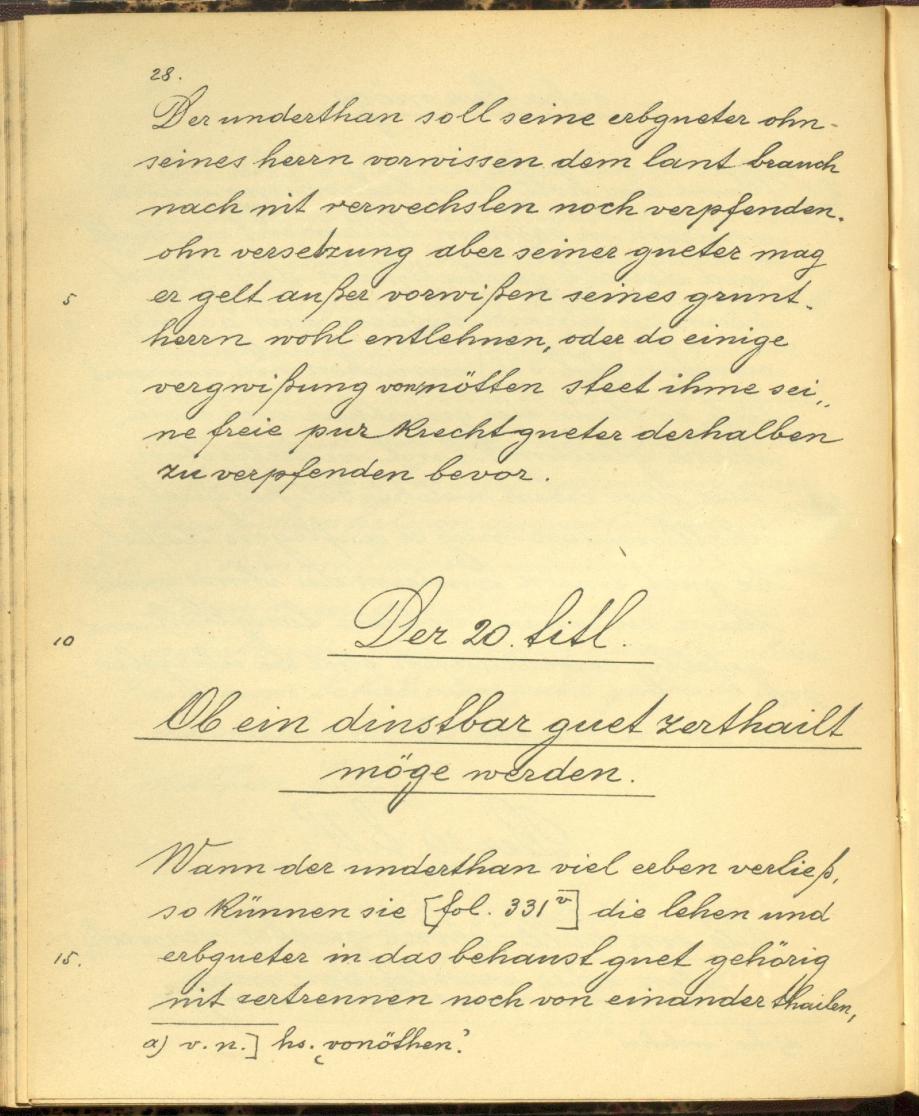 28.
Der underthan soll seine erbgueter ohn-
seines herrn vorwissen dem lant brauch
nach nit verwechslen noch verpfenden.
ohn versetzung aber seiner gueter mag
5 er gelt außer vorwißen seines grunt-
herrn wohl entlehnen, oder do einige
vergwißung vonnötten steet ihme sei„
ne freie purkrechtgueter derhalben
zu verpfenden bevor.
10 Der 20. titl.
Ob ein dinstbar guet zerthailt
möge werden.
Wann der underthan viel erben verließ,
so künnen sie [fol. 331v] die lehen und
15. erbgueter in das behaust guet gehörig
nit zertrennen noch von einander thailen,
a) v. n.] hs. „vonöthen“.